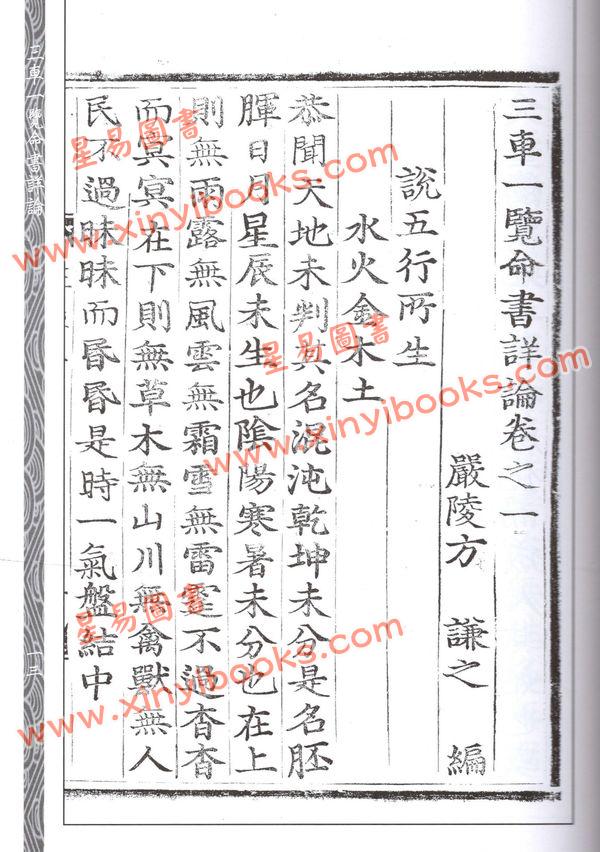 三車一覽命書詳論卷之一
嚴陵方　謙之　編
說五行所生
水火金木土
恭聞天地未判其名混沌乾坤未分是名胚
腪日月星辰未生也陰陽寒暑未分也在上
則無雨露無風雲無霜雪無雷霆不過杳杳
而冥冥在下則無草木無山川無禽獸無人
民不過昧昧而昏昏是時一氣盤結中
三車一覽命書詳論
一三
星易圖書
www.xinyibooks.com
星易圖書
www.xinyibooks.com
星易圖書
www.xinyibooks.com